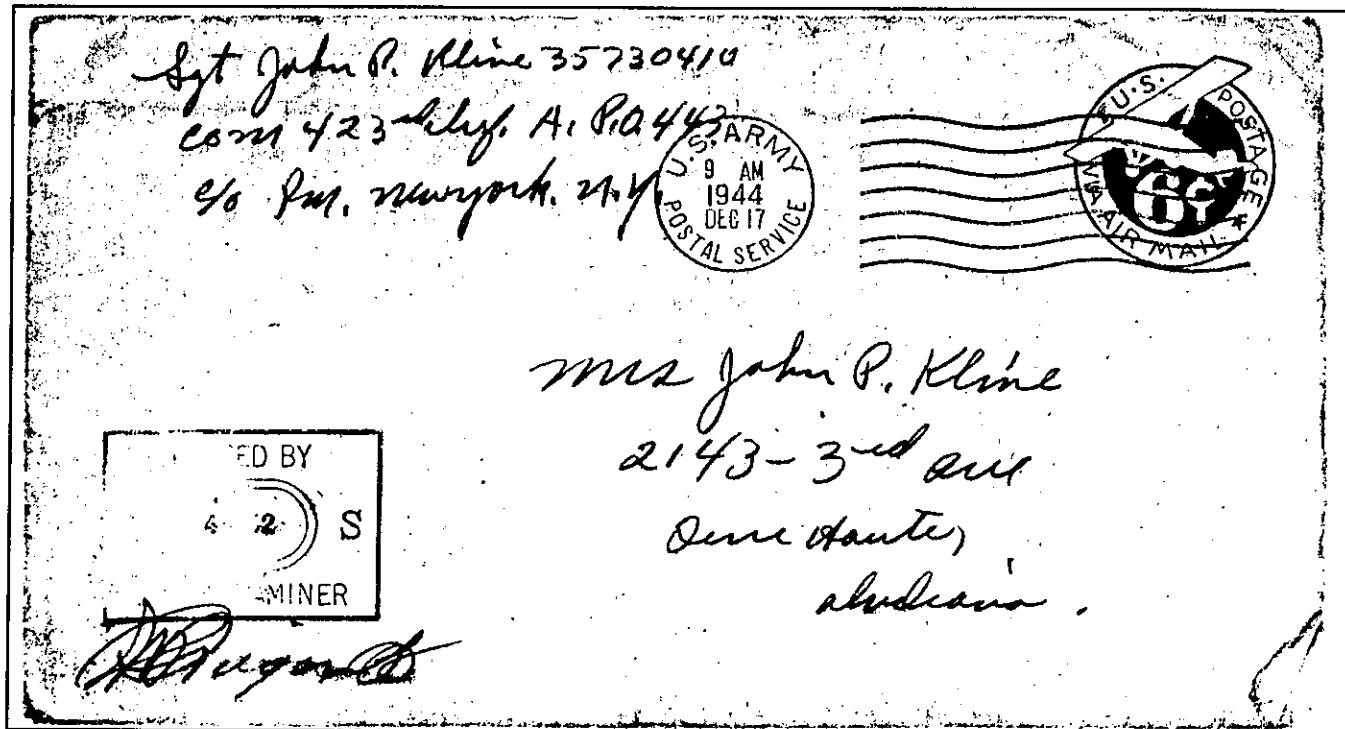 Sgt John P. Kline 35730410
com 423rd Inf. A.P.O. 443
c/o Pm. New york. N.Y.
U.S. ARMY
9 AM
1944
DEC 17
POSTAL SERVICE
U.S. POSTAGE
VIA AIR MAIL
Mrs John P. Kline
2143 - 3rd Ave
Terre Haute,
Indiana.
ED BY
2 S
MINER